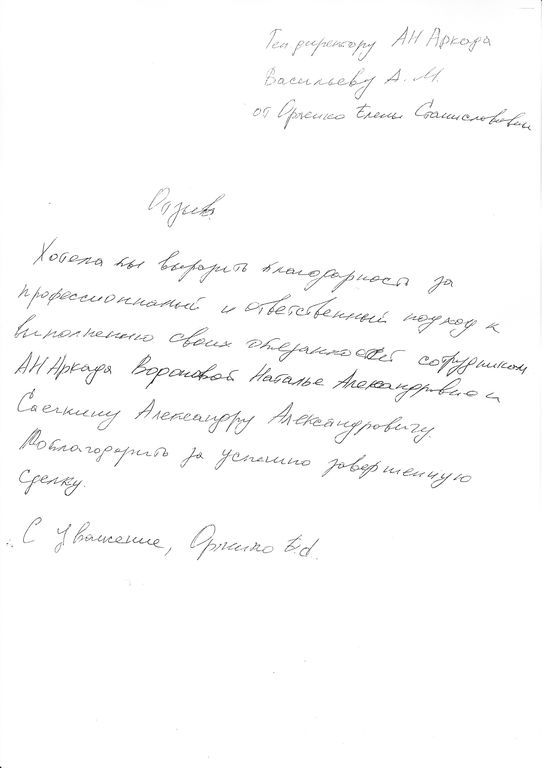 Ген. директору АН Аркада
Васильеву А. М.
от Елены Станиславовны
Отзыв.
Хотела бы выразить благодарность за
профессиональный и ответственный подход к
выполнению своих обязанностей сотрудникам
АН Аркада Вороновой Наталье Александровне и
Александру Александровичу.
Поблагодарить за успешно завершенную
сделку.
С уважение,